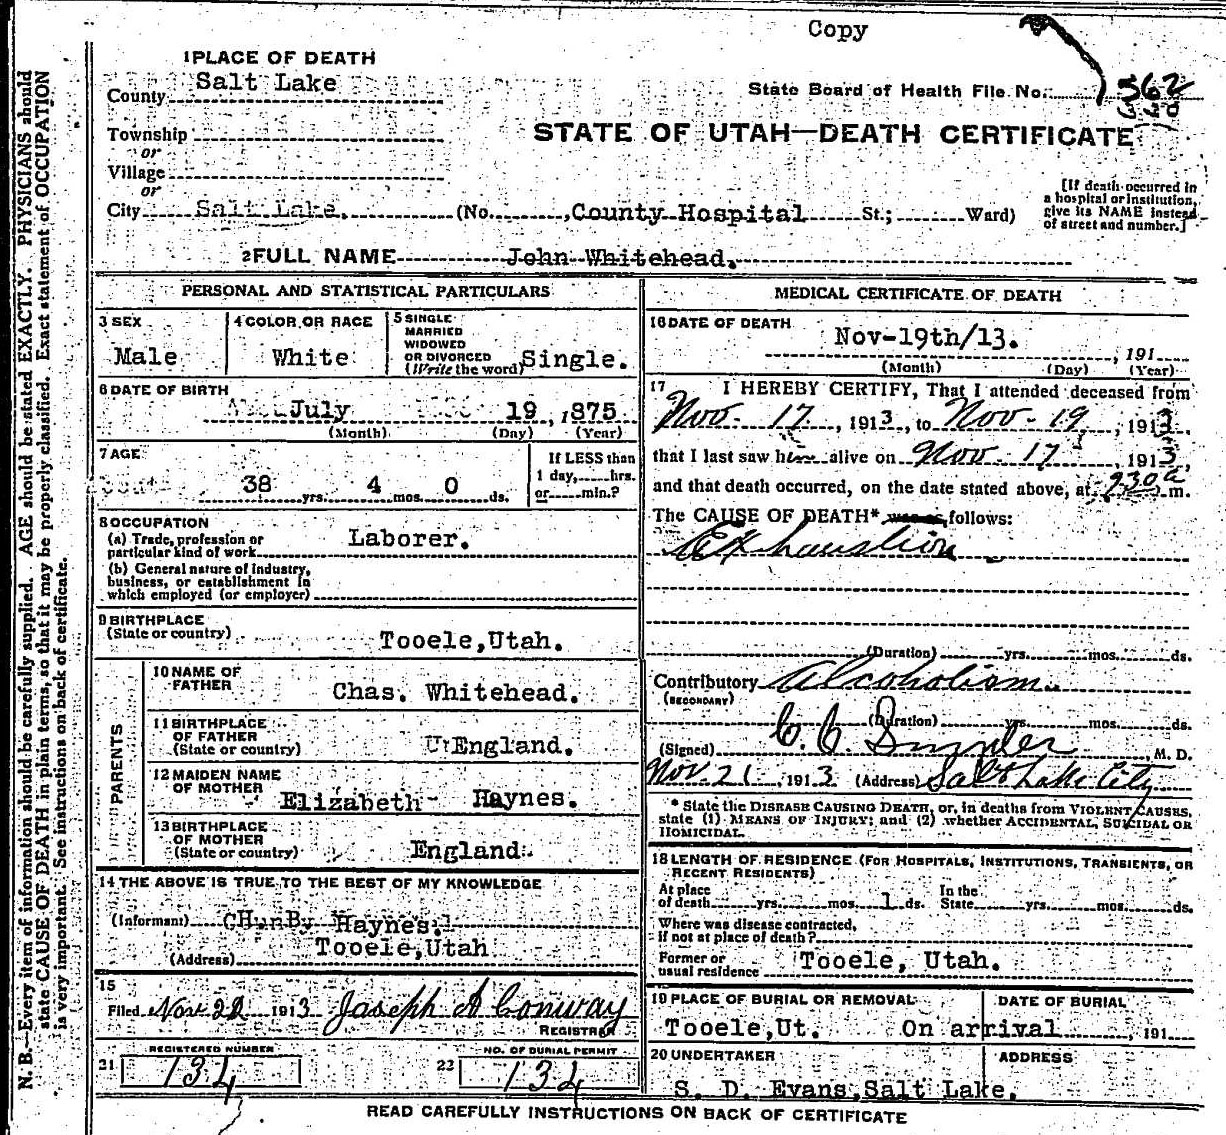 Copy
1 PLACE OF DEATH
County Salt Lake
State Board of Health File No. 562
Township
or
STATE OF UTAH—DEATH CERTIFICATE
Village
or
City Salt Lake. (No. , County Hospital St.; Ward)
[If death occurred in
a hospital or institution,
give its NAME instead
of street and number.]
2 FULL NAME John Whitehead.
PERSONAL AND STATISTICAL PARTICULARS
3 SEX
Male
4 COLOR OR RACE
White
5 SINGLE
MARRIED
WIDOWED
OR DIVORCED
(Write the word) Single.
6 DATE OF BIRTH
July 19 , 1875
(Month) (Day) (Year)
7 AGE
38 yrs. 4 mos. 0 ds.
If LESS than
1 day, hrs.
or min.?
8 OCCUPATION
(a) Trade, profession or
particular kind of work Laborer.
(b) General nature of industry,
business, or establishment in
which employed (or employer)
9 BIRTHPLACE
(State or country) Tooele, Utah.
PARENTS
10 NAME OF
FATHER Chas. Whitehead.
11 BIRTHPLACE
OF FATHER
(State or country) England.
12 MAIDEN NAME
OF MOTHER Elizabeth Haynes.
13 BIRTHPLACE
OF MOTHER
(State or country) England.
14 THE ABOVE IS TRUE TO THE BEST OF MY KNOWLEDGE
(Informant) Haynes.
(Address) Tooele, Utah
15
Filed Nov 22 1913 Joseph A Conway
REGISTRAR
21 REGISTERED NUMBER 134
22 NO. OF BURIAL PERMIT 134
MEDICAL CERTIFICATE OF DEATH
16 DATE OF DEATH
Nov-19th/13. , 191
(Month) (Day) (Year)
17 I HEREBY CERTIFY, That I attended deceased from
Nov. 17 , 1913, to Nov. 19 , 1913,
that I last saw him alive on Nov. 17 , 1913,
and that death occurred, on the date stated above, at 230 a m.
The CAUSE OF DEATH* was as follows:
Exhaustion
(Duration) yrs. mos. ds.
Contributory Alcoholism
(SECONDARY)
(Duration) yrs. mos. ds.
(Signed) C. C. M. D.
Nov. 21 , 1913 (Address) Salt Lake City
* State the DISEASE CAUSING DEATH, or, in deaths from VIOLENT CAUSES,
state (1) MEANS OF INJURY; and (2) whether ACCIDENTAL, SUICIDAL OR
HOMICIDAL.
18 LENGTH OF RESIDENCE (FOR HOSPITALS, INSTITUTIONS, TRANSIENTS, OR
RECENT RESIDENTS)
At place
of death yrs. mos. 1 ds.
In the
State yrs. mos. ds.
Where was disease contracted,
if not at place of death?
Former or
usual residence Tooele, Utah.
19 PLACE OF BURIAL OR REMOVAL
Tooele, Ut.
DATE OF BURIAL
On arrival , 191
20 UNDERTAKER
ADDRESS
S. D. Evans, Salt Lake.
READ CAREFULLY INSTRUCTIONS ON BACK OF CERTIFICATE
N. B.—Every item of information should be carefully supplied. AGE should be stated EXACTLY. PHYSICIANS should
state CAUSE OF DEATH in plain terms, so that it may be properly classified. Exact statement of OCCUPATION
is very important. See instructions on back of certificate.